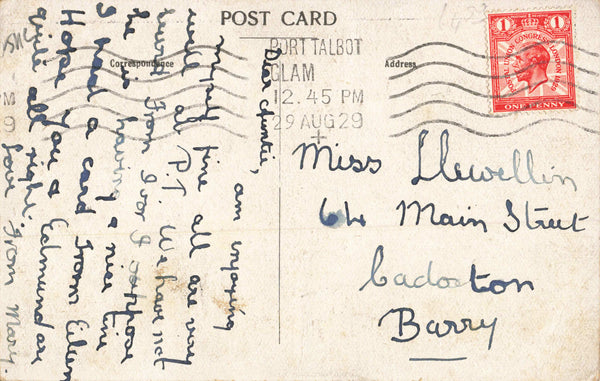 POST CARD
Correspondence
Address
PORT TALBOT
GLAM
12.45 PM
29 AUG 29
POSTAL UNION CONGRESS LONDON 1929
1
1
ONE PENNY
Dear Auntie,
am enjoying
myself fine all are very
well at P.T. We have not
heard from Ivor I suppose
he is having a nice time
I had a card from Eileen
Hope you & Edmund are
quite all right.
Love from Mary.
Miss Llewellin
64 Main Street
Cadoxton
Barry
PM
9